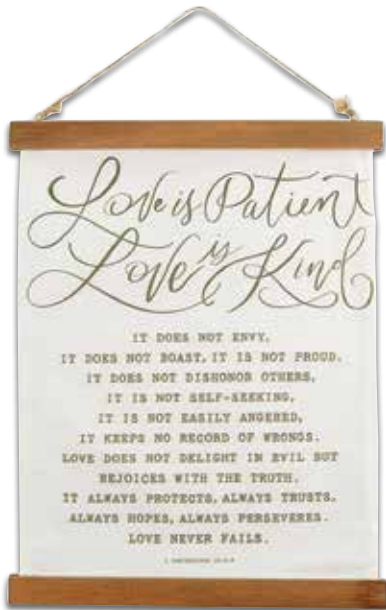 Love is Patient
Love is Kind
IT DOES NOT ENVY,
IT DOES NOT BOAST, IT IS NOT PROUD.
IT DOES NOT DISHONOR OTHERS,
IT IS NOT SELF-SEEKING,
IT IS NOT EASILY ANGERED,
IT KEEPS NO RECORD OF WRONGS.
LOVE DOES NOT DELIGHT IN EVIL BUT
REJOICES WITH THE TRUTH.
IT ALWAYS PROTECTS, ALWAYS TRUSTS,
ALWAYS HOPES, ALWAYS PERSEVERES.
LOVE NEVER FAILS.